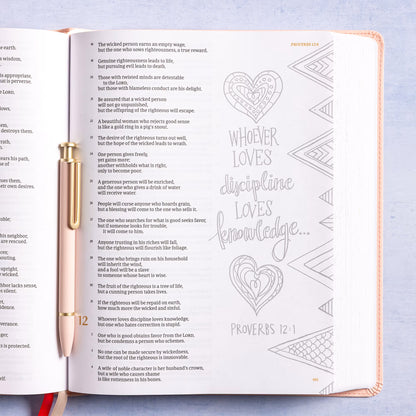 earth.
wisdom,
ut.
s appropriate,
at is perverse.
r integrity,
m.
destroys them.
ears his path,
of
em,
own desires.
is rescued;
hbor,
are rescued.
wright,
wicked
PROVERBS 12:6
18 The wicked person earns an empty wage,
but the one who sows righteousness, a true reward.
19 Genuine righteousness leads to life,
but pursuing evil leads to death.
20 Those with twisted minds are detestable
to the LORD,
but those with blameless conduct are his delight.
21 Be assured that a wicked person
will not go unpunished,
but the offspring of the righteous will escape.
22 A beautiful woman who rejects good sense
is like a gold ring in a pig's snout.
23 The desire of the righteous turns out well,
but the hope of the wicked leads to wrath.
24 One person gives freely,
yet gains more;
another withholds what is right,
only to become poor.
25 A generous person will be enriched,
and the one who gives a drink of water
will receive water.
26 People will curse anyone who hoards grain,
but a blessing will come to the one who sells it.
27 The one who searches for what is good seeks favor,
but if someone looks for trouble,
it will come to him.
28 Anyone trusting in his riches will fall,
but the righteous will flourish like foliage.
29 The one who brings ruin on his household
will inherit the wind,
and a fool will be a slave
to someone whose heart is wise.
30 The fruit of the righteous is a tree of life,
but a cunning person takes lives.
31 If the righteous will be repaid on earth,
how much more the wicked and sinful.
12 Whoever loves discipline loves knowledge,
but one who hates correction is stupid.
2 One who is good obtains favor from the LORD,
but he condemns a person who schemes.
3 No one can be made secure by wickedness,
but the root of the righteous is immovable.
4 A wife of noble character is her husband's crown,
but a wife who causes shame
is like rottenness in his bones.
WHOEVER
LOVES
discipline
LOVES
knowledge...
PROVERBS 12:1